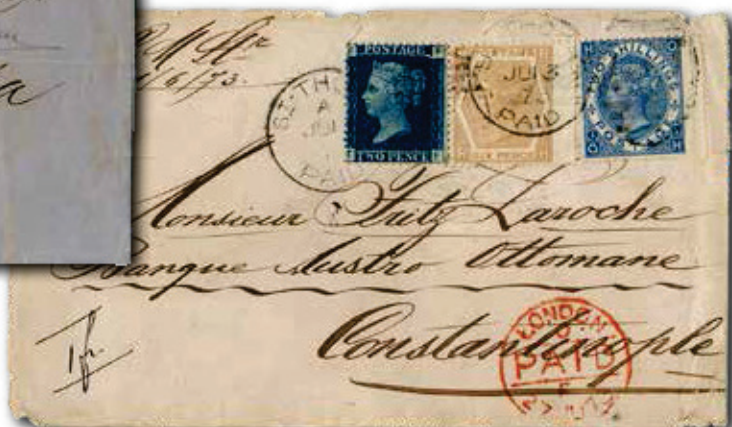 6/73.
POSTAGE
TWO PENCE
ST. THO
A
PAID
SIX PENCE
PAID
TWO SHILLINGS
POSTAGE
H O
O H
Monsieur Fritz Laroche
Banque Austro Ottomane
Constantinople
1 fr.
LONDON
PAID